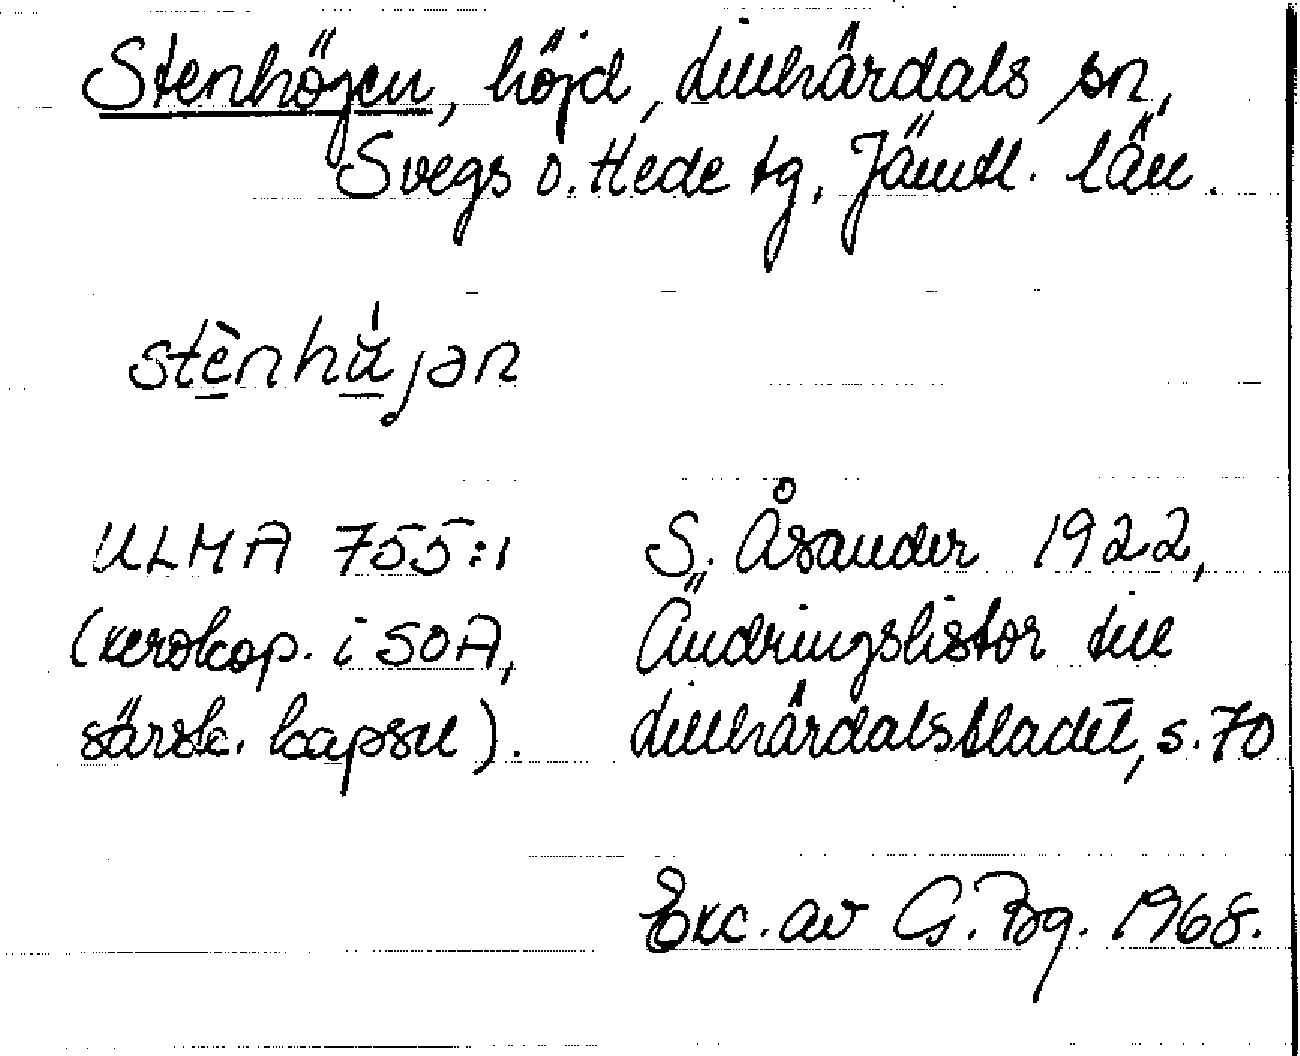 Stenhöjen, höjd, Lillhärdals sn,
Svegs o. Hede tg, Jämtl. län.
stènhú̆jən
ULMA 755:1
(xerokop. i SOA,
särsk. kapsel).
S. Åsander 1922,
Ändringslistor till
Lillhärdalsbladet, s. 70
Exc. av G. Bg. 1968.